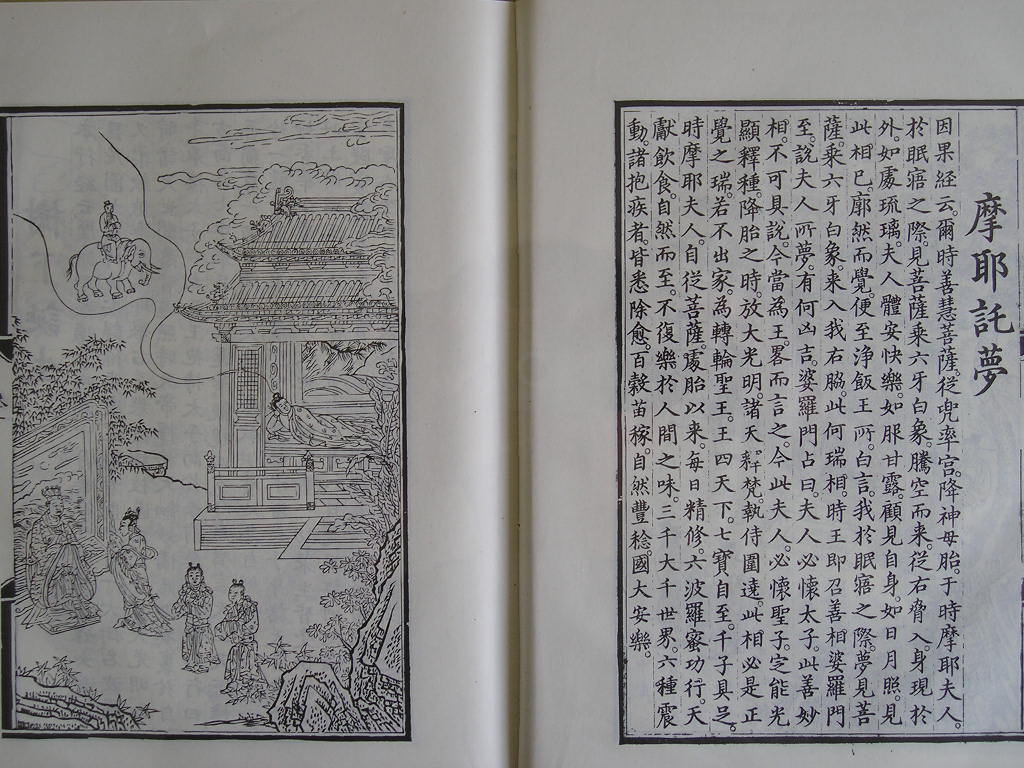 摩耶託夢
因果経云。爾時善慧菩薩。従兜率宮。降神母胎。于時摩耶夫人。
於眠寤之際。見菩薩乗六牙白象。騰空而来。従右脅入。身現於
外。如處琉璃。夫人體安快樂。如服甘露。顧見自身。如日月照。見
此相已。廓然而覺。便至浄飯王所。白言。我於眠寤之際。夢見菩
薩。乗六牙白象。来入我右脇。此何瑞相。時王即召善相婆羅門
至。說夫人所夢。有何凶吉。婆羅門占曰。夫人必懐太子。此善妙
相。不可具說。今當為王畧而言之。今此夫人。必懐聖子。定能光
顯釋種。降胎之時。放大光明。諸天釋梵。執侍圍遶。此相必是正
覺之瑞。若不出家。為轉輪聖王。王四天下。七寶自至。千子具足。
時摩耶夫人。自従菩薩。處胎以来。每日精修。六波羅蜜功行。天
獻飲食。自然而至。不復樂於人間之味。三千大千世界。六種震
動。諸抱疾者。皆悉除愈。百穀苗稼。自然豐稔。國大安樂。